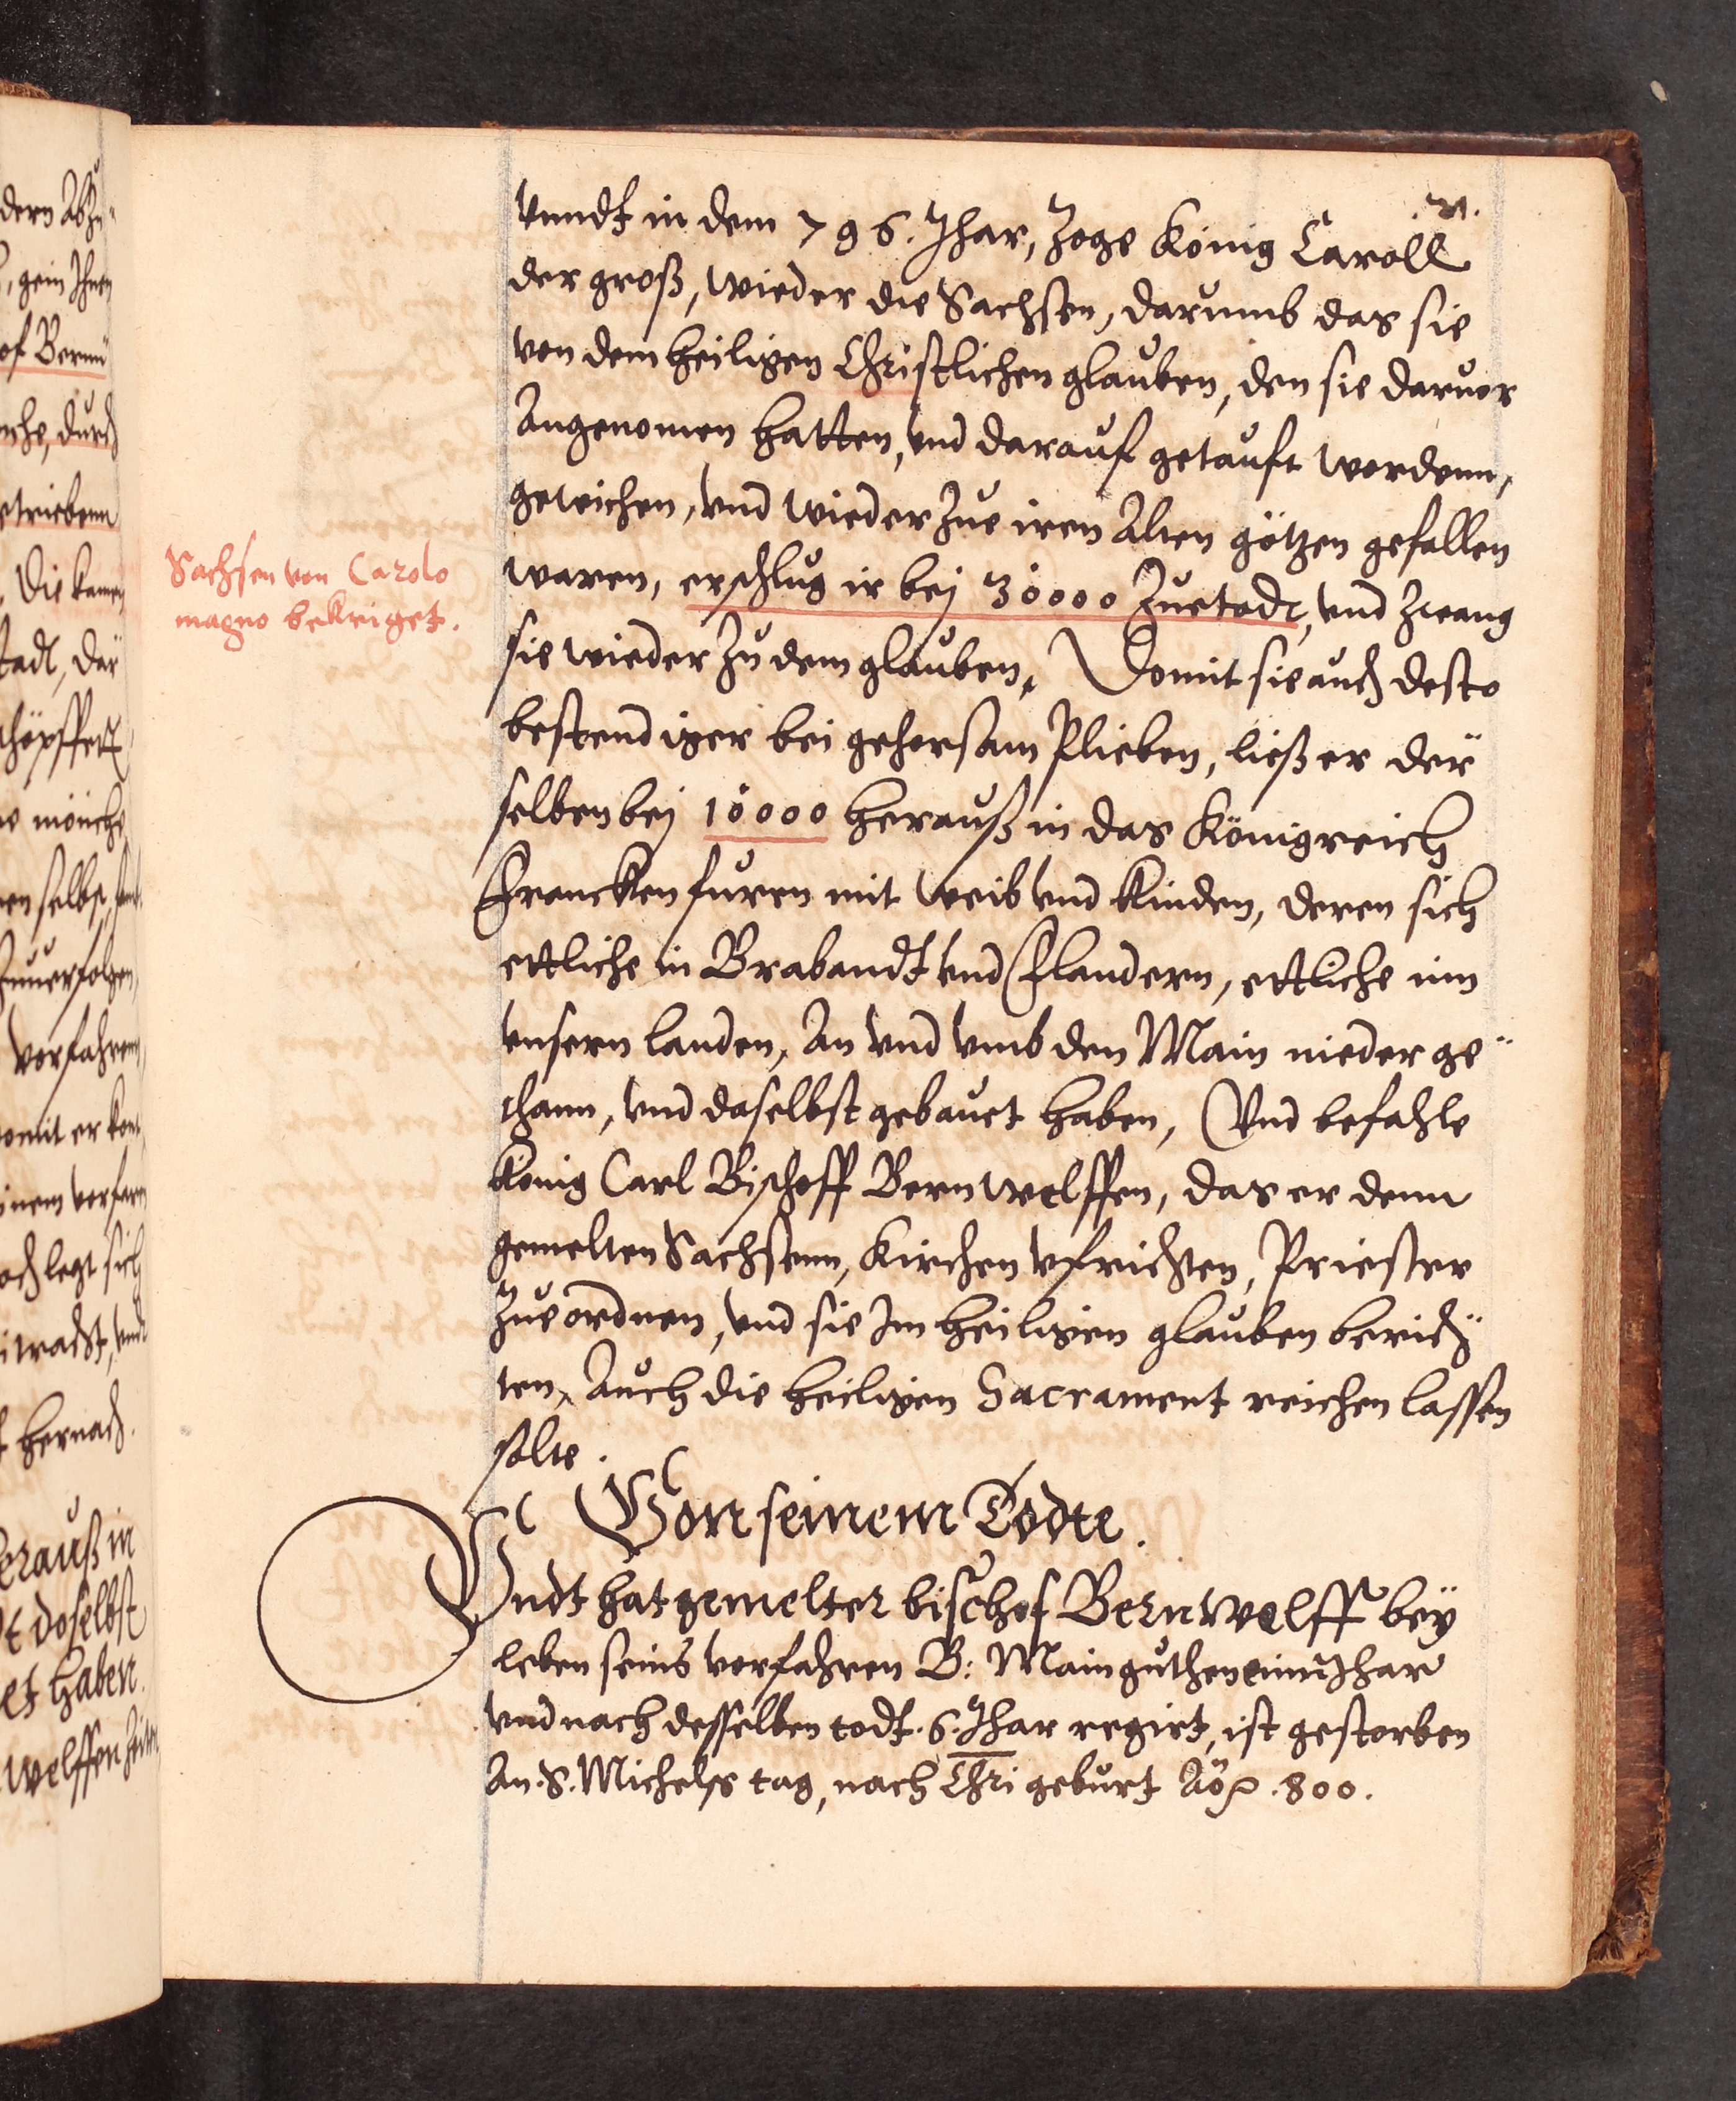 21.
Vnndt in dem 796. Jhar, zoge König Caroll
der groß, wieder die Sachsen, darumb das sie
von dem heiligen Christlichen glauben, den sie daruor
Angenomen hatten, vnd darauf getauft wordenn,
gewichen, vnd wieder zue iren Alten götzen gefallen
waren, erschlug ir bej 30000 zuetodt, vnd zwang
sie wieder zu dem glauben, Domit sie auch desto
bestendiger bei gehorsam plieben, ließ er der
selben bej 10000 herauß in das Königreich
Francken furen mit weib vnd kinden, deren sich
ettliche in Brabandt vnd Flandern, ettliche inn
vnsern landen, An vnd vmb den Main nieder ge
thann, vnd daselbst gebauet haben, Vnd befahle
König Carl Bischoff Bernwelffen, das er denn
gemelten Sachsenn, Kirchen vfrichten, Priester
zue ordnen, vnd sie Im heiligen glauben berich
ten, Auch die heiligen Sacrament reichen lassen
solte.
Sachsen von Carolo
magno bekriget.
Von seinem Todte.
Vndt hat gemelter bischof Bernwelff bey
leben seins vorfahren B: Mainguthen einn Jhar
vnd nach desselben todt. 6. Jhar regirt, ist gestorben
An. S. Michels tag, nach Chri geburt Aō 800.